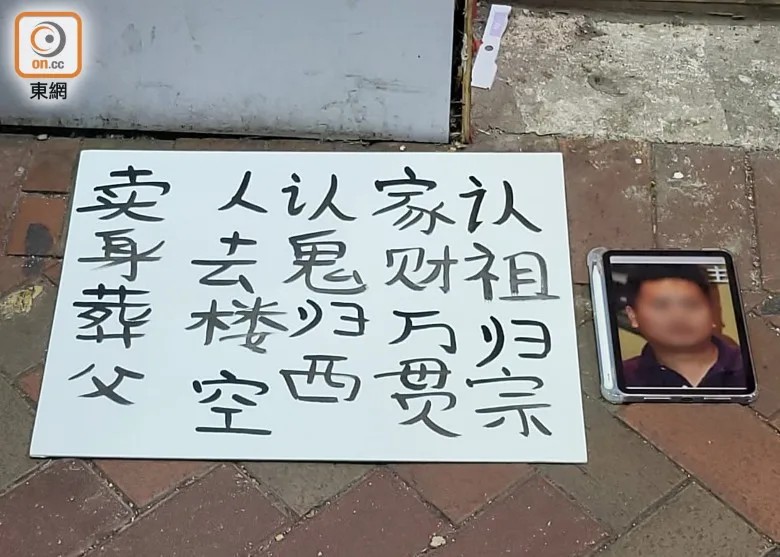 on.cc
東網
认祖归宗
家财万贯
认鬼归西
人去楼空
卖身葬父